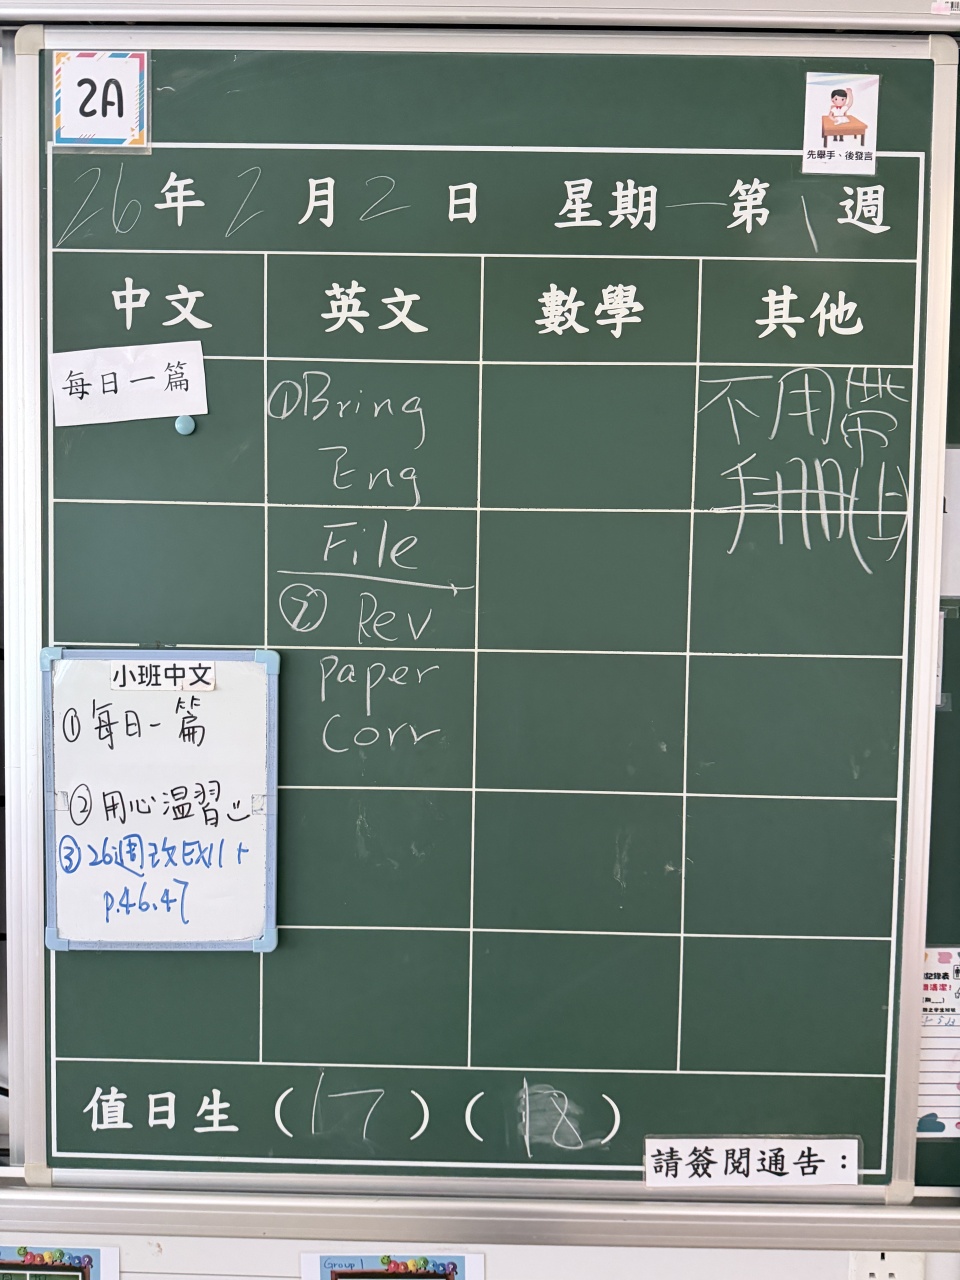 2A
先舉手、後發言
26年2月2日 星期一第1週
中文 英文 數學 其他
每日一篇
①Bring
Eng
File
② Rev
paper
Corr
不用帶
手冊(出)
小班中文
①每日一篇
②用心温習
③26週改EX11
p.46.47
值日生(17)(18)
請簽閱通告：
Group 1